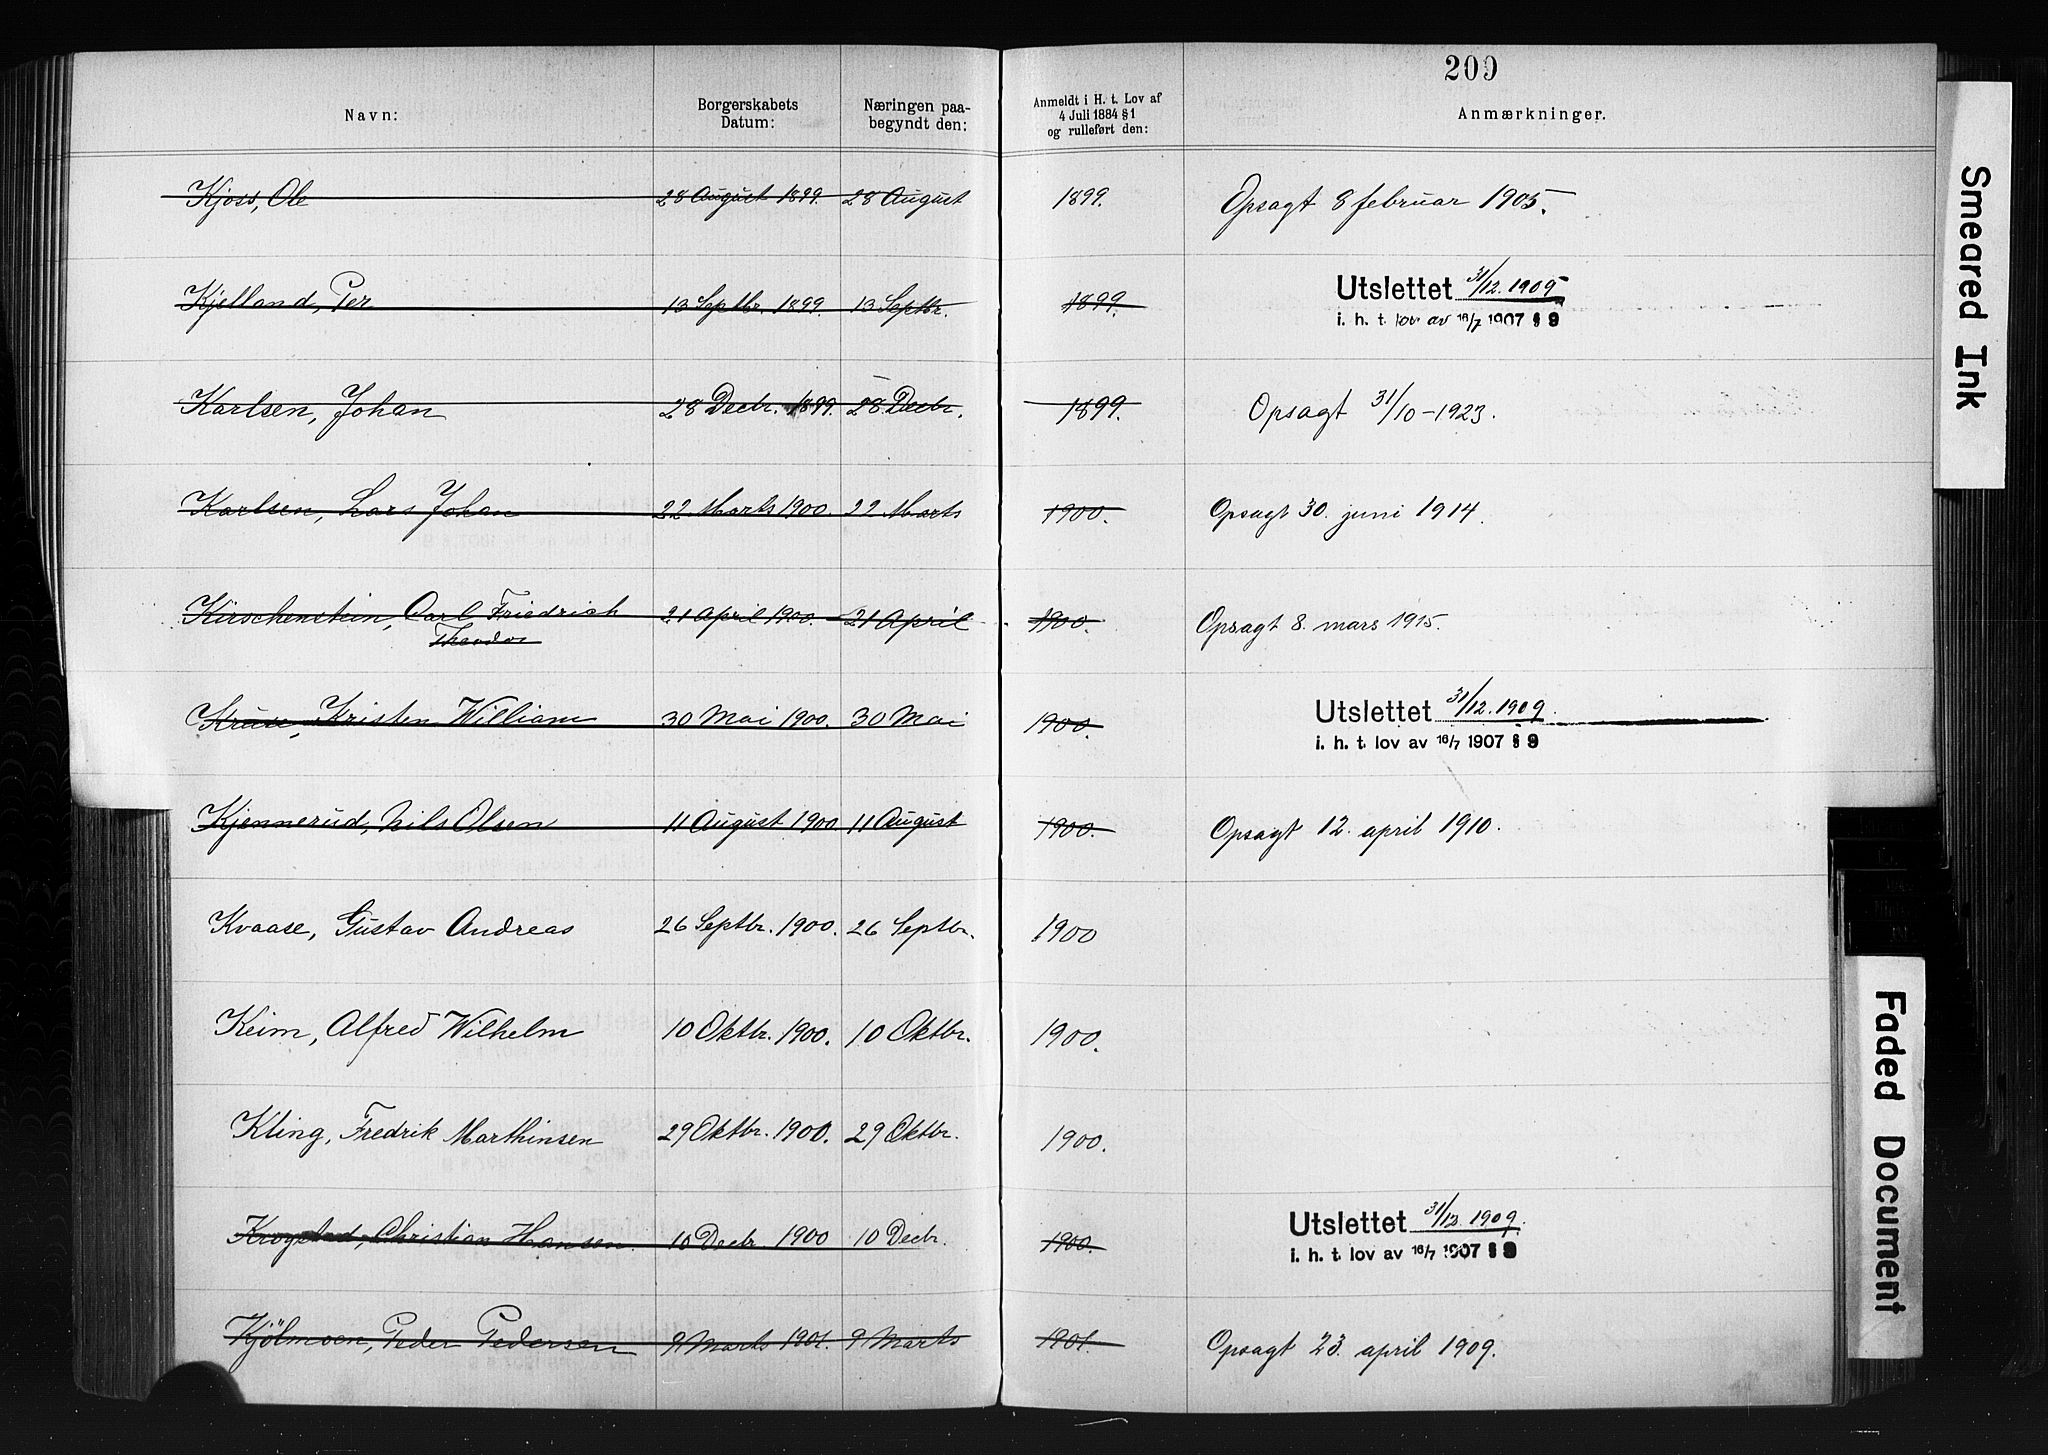 209
Navn: Borgerskabets Datum: Næringen paa-begyndt den: Anmeldt i H. t. Lov af 4 Juli 1884 § 1 og rulleført den: Anmærkninger.
Kjoss, Ole 28 August 1899. 28 August 1899. Opsagt 8 februar 1905.
Kjelland, Per 13 Septbr. 1899. 13 Septbr. 1899. Utslettet 31/12. 1909
i. h. t. lov av 16/7 1907 § 9
Karlsen, Johan 28 Decbr. 1899. 28 Decbr. 1899. Opsagt 31/10-1923.
Karlsen, Lars Johan 22 Marts 1900. 22 Marts 1900. Opsagt 30. juni 1914.
Kirschenstein, Carl Friedrich 21 April 1900. 21 April 1900. Opsagt 8. mars 1915.
Theodor
Kruse, Kristen William 30 Mai 1900. 30 Mai 1900. Utslettet 31/12. 1909.
i. h. t. lov av 16/7 1907 § 9
Kjennerud, Nils Olsen 11 August 1900 11 August 1900. Opsagt 12. april 1910.
Kvaase, Gustav Andreas 26 Septbr. 1900. 26 Septbr. 1900
Keim, Alfred Wilhelm 10 Oktbr. 1900. 10 Oktbr. 1900.
Kling, Fredrik Marthinsen 29 Oktbr. 1900. 29 Oktbr. 1900.
Krogstad, Christian Hansen. 10 Decbr. 1900 10 Decbr. 1900. Utslettet 31/12. 1909.
i. h. t. lov av 16/7 1907 § 9
Kjölmoen, Peder Pedersen 9 Marts 1901. 9 Marts 1901. Opsagt 23. april 1909.
Smeared Ink
Faded Document